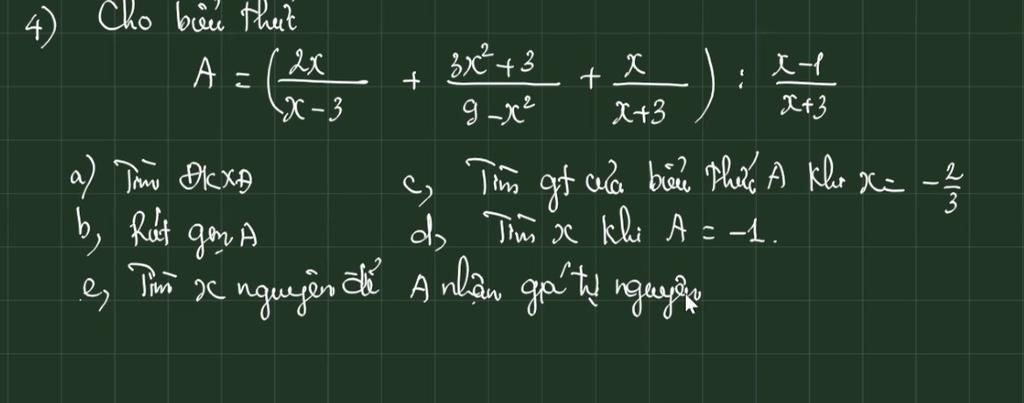 4) Cho biểu thức
A = (2x/(x-3) + (3x²+3)/(9-x²) + x/(x+3)) : (x-1)/(x+3)
a) Tìm ĐKXĐ c, Tìm gt của biểu thức A khi x = -2/3
b, Rút gọn A d, Tìm x khi A = -1.
e, Tìm x nguyên để A nhận giá trị nguyên